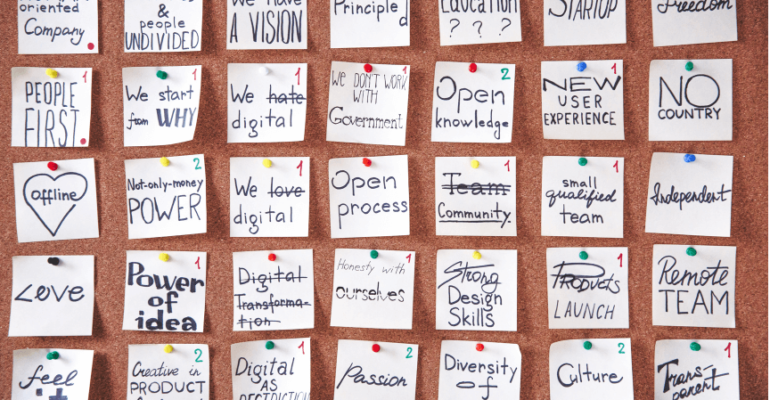 oriented
Company
& people
UNDIVIDED
We have
A VISION
Principle
Education
? ? ?
STARTUP
Freedom
1
PEOPLE
FIRST
We start
from WHY
1
We hate
digital
1
We DON'T WORK
WITH
Government
2
Open
knowledge
1
NEW
USER
EXPERIENCE
NO
COUNTRY
offline
2
Not-only-money
POWER
1
We love
digital
Open
process
1
Team
Community
1
small
qualified
team
Independent
Love
1
Power
of
idea
Digital
Transforma-
tion
1
Honesty with
ourselves
Strong
Design
Skills
1
Products
LAUNCH
Remote
TEAM
feel
it
2
Creative in
PRODUCT
1
Digital
AS
2
Passion
Diversity
of
2
Culture
1
Trans-
parent